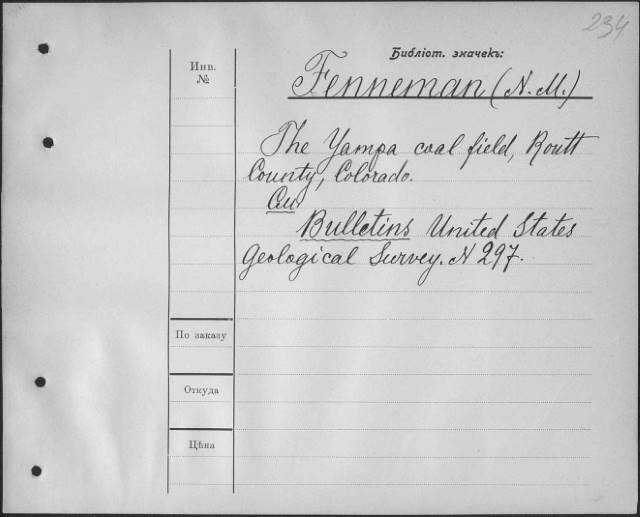 234
Библіот. значекъ:
Инв.
№
Fenneman (N.M.)
The Yampa coal field, Routt
County, Colorado.
См
Bulletins United States
Geological Survey. N 297.
По заказу
Откуда
Цѣна